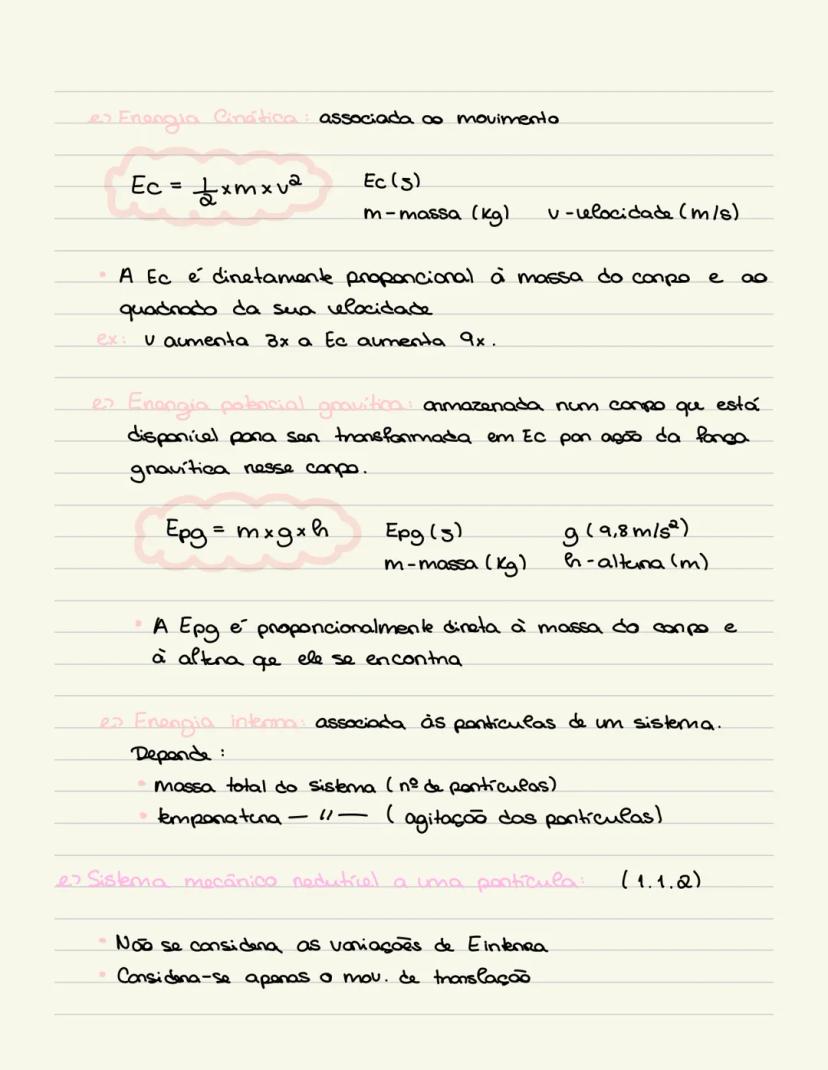 ↪ Energia Cinética: associada ao movimento
Ec = 1/2 x m x v² Ec (J)
m - massa (kg) v - velocidade (m/s)
• A Ec é diretamente proporcional à massa do corpo e ao
quadrado da sua velocidade
ex: v aumenta 3x a Ec aumenta 9x.
↪ Energia potencial gravítica: armazenada num corpo que está
disponível para ser transformada em Ec por ação da força
gravítica nesse corpo.
Epg = m x g x h Epg (J) g (9,8 m/s²)
m - massa (kg) h - altura (m)
• A Epg é proporcionalmente direta à massa do corpo e
à altura que ele se encontra
↪ Energia interna: associada às partículas de um sistema.
Depende:
• massa total do sistema (nº de partículas)
• temperatura — " — (agitação das partículas)
↪ Sistema mecânico redutível a uma partícula: (1.1.2)
• Não se considera as variações de E interna
• Considera-se apenas o mov. de translação